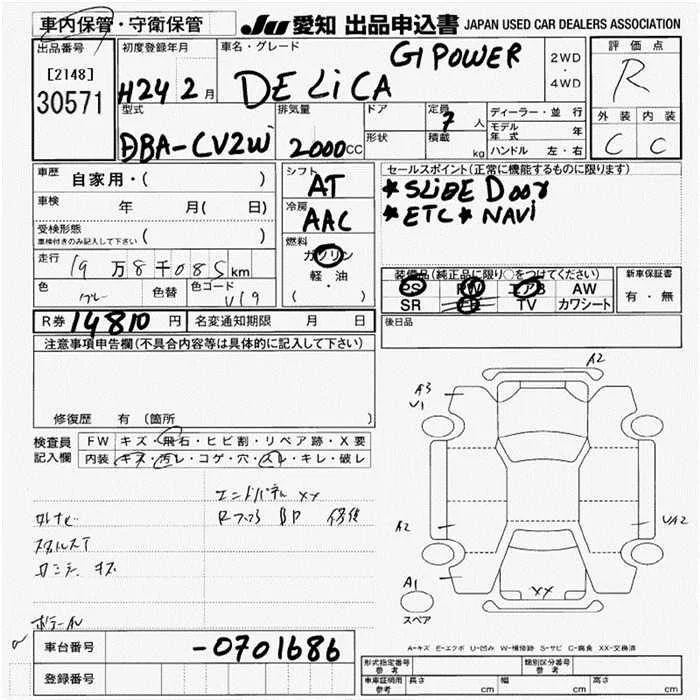 車内保管・守衛保管
JU 愛知 出品申込書 JAPAN USED CAR DEALERS ASSOCIATION
出品番号
[2148]
30571
初度登録年月
H24 2月
車名・グレード
G1 POWER
DELiCA
2WD
・
4WD
評価点
R
外装 内装
C C
型式
DBA-CV2W
排気量
2000CC
ドア
形状
定員
7人
積載
kg
ディーラー・並行
モデル年式 年
ハンドル 左・右
車歴
自家用・( )
車検 年 月( 日)
受検形態
車検付きのみ記入して下さい ( )
走行
19万8千085km
色 色替 色コード
U19
シフト
AT
冷房
AAC
燃料
ガソリン
軽・油
( )
セールスポイント(正常に機能するものに限ります)
*SLiDE Door
*ETC *NAVi
装備品(純正品に限り○をつけてください)
PS PW エアB AW
SR TV カワシート
新車保証書
有・無
後日品
R券 14810円
名変通知期限 月 日
注意事項申告欄(不具合内容等は具体的に記入して下さい)
修復歴 有 (箇所 )
検査員
記入欄
FW キズ・飛石・ヒビ割・リペア跡・X要
内装 キズ・汚レ・コゲ・穴・スレ・キレ・破レ
エンドパネル XX
Rフロア BP 修復
キズ
A2
A3
U1
A2
UA2
A1
XX
スペア
A-キズ E-エクボ U-凹み W-補修跡 S-サビ C-腐食 XX-交換済
車台番号
-0701686
登録番号
形式指定番号
参考
類別区分番号
参考
車庫証明用
参考
長さ cm
幅 cm
高さ cm